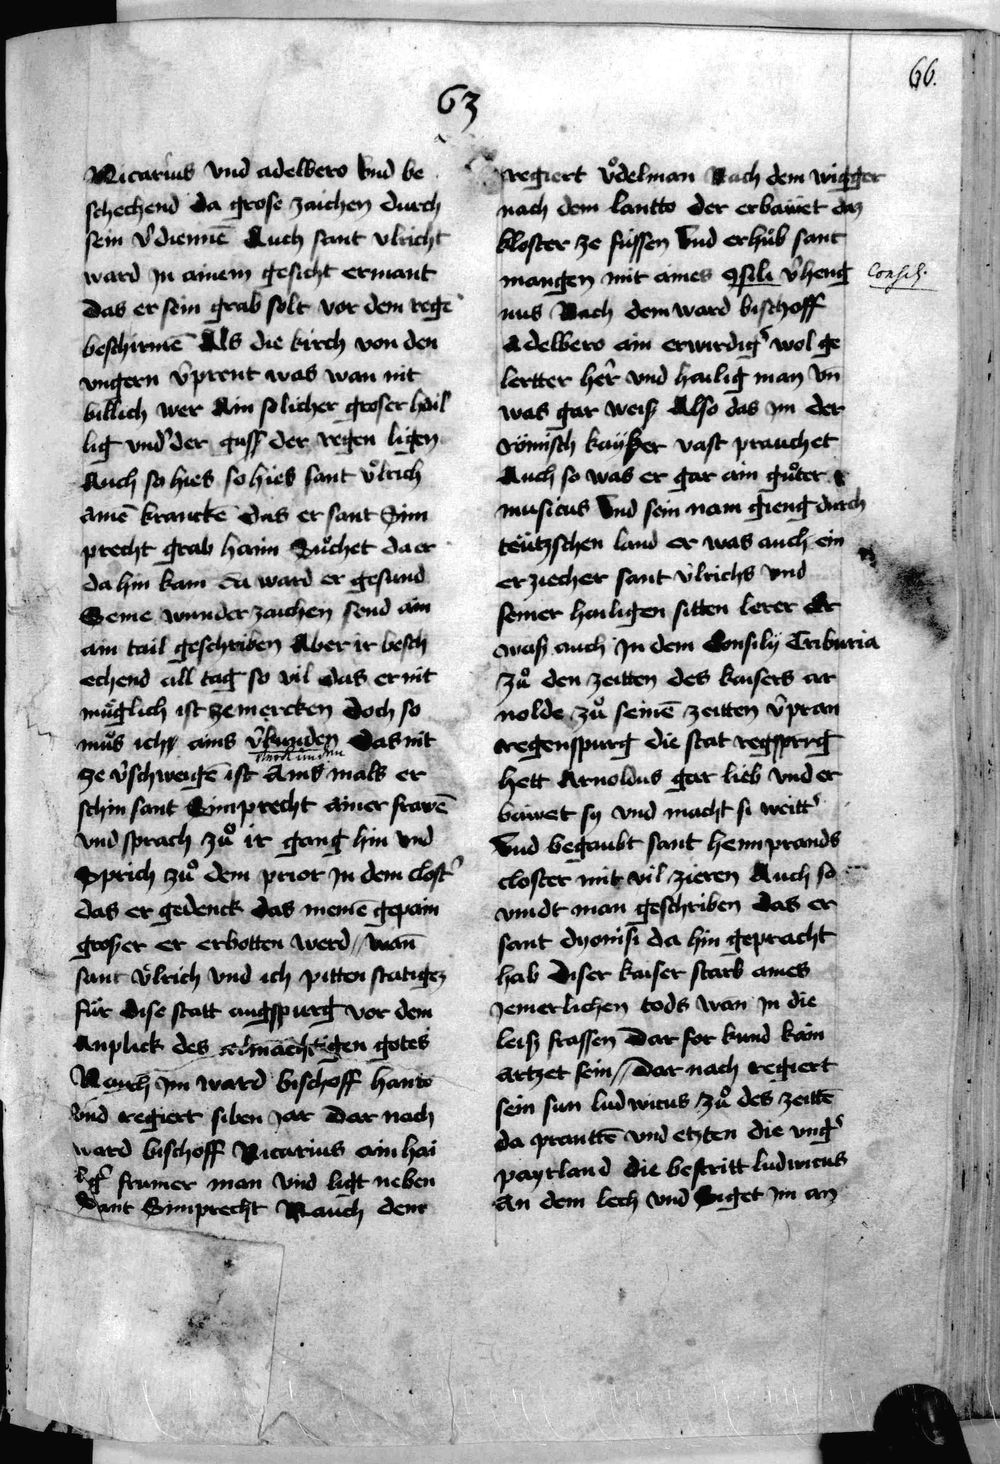 66.
63
Nicarius vnd adelbero vnd be
schechend da grose zaichen durch
sein v̉diennē Auch sant vlricht
ward jn ainem gesicht ermant
das er sein grab solt vor dem rege
beschirmē Als die kirch von den
vngern v̉prent was wan nit
billich wer Ain solicher groser hail
lig vnd der guss der regen ligen
Auch so hies so hies sant vͦlrich
ainē krancke das er sant Sim
precht grab haim Suͦchet da er
da hin kam da ward er gesund
Seine wunderzaichen send ain
ain tail geschriben Aber ir besch
echend all tag so vil das er nit
muglich ist ze mercken doch so
muͦs ich ains v̉kunden das nit
ze v̉schweigē ist Ains mals er
schin sant Simprecht ainer frawē
vnd sprach zuͦ ir gang hin vnd
Sprich zuͦ dem prior jn dem clost̉
das er gedenck das meinē gepain
groser er erbotten werd // wan
sant vͦlrich vnd ich pitten statigez
für dise statt augspurg vor dem
Anplick des almächtigen gotes
Nauch jm ward bischoff hanto
vnd regiert siben jar dar nach
ward bischoff Nicarius ain hai
lig̉ frumer man vnd ligt neben
Sant Simprecht Nauch dem
regiert vͦdelman Nach dem wigger
nach dem lantto der erbawet daz
kloster ze füssen vnd erhuͦb sant
mangen mit aines 9sili v̉heng
Consil.
nus Nach dem ward bischoff
Adelbero ain erwirdig̉ wol ge
lertter her vnd hailig man vn
was gar weiß Also das jm der
römisch kayser vast prauchet
Auch so was er gar ain guͦter
musicus vnd sein nam gieng durch
teützschen land er was auch ein
erziecher sant vlrichs vnd
seiner hailigen sitten lerer Er
waß auch jn dem Consilij Triburia
zuͦ den zeitten des kaisers ar
nolde zuͦ seinē zeitten v̉pran
regenspurg die stat regsprrg
hett Arnoldus gar lieb vnd er
bawet sy vnd macht si weitt̉
vnd begaubt sant heimprands
closter mit vil zieren Auch so
vindt man geschriben das er
sant dyonisi da hin gepracht
hab Diser kaiser starb aines
jemerlichen tods wan jn die
leiß frassen Dar for kund kain
artzet sein // Dar nach regiert
sein sun ludwicus zuͦ des zeittē
da prauttē vnd etzten die vng̉
payrland die bestritt ludwicus
An dem lech vnd Siget jm an